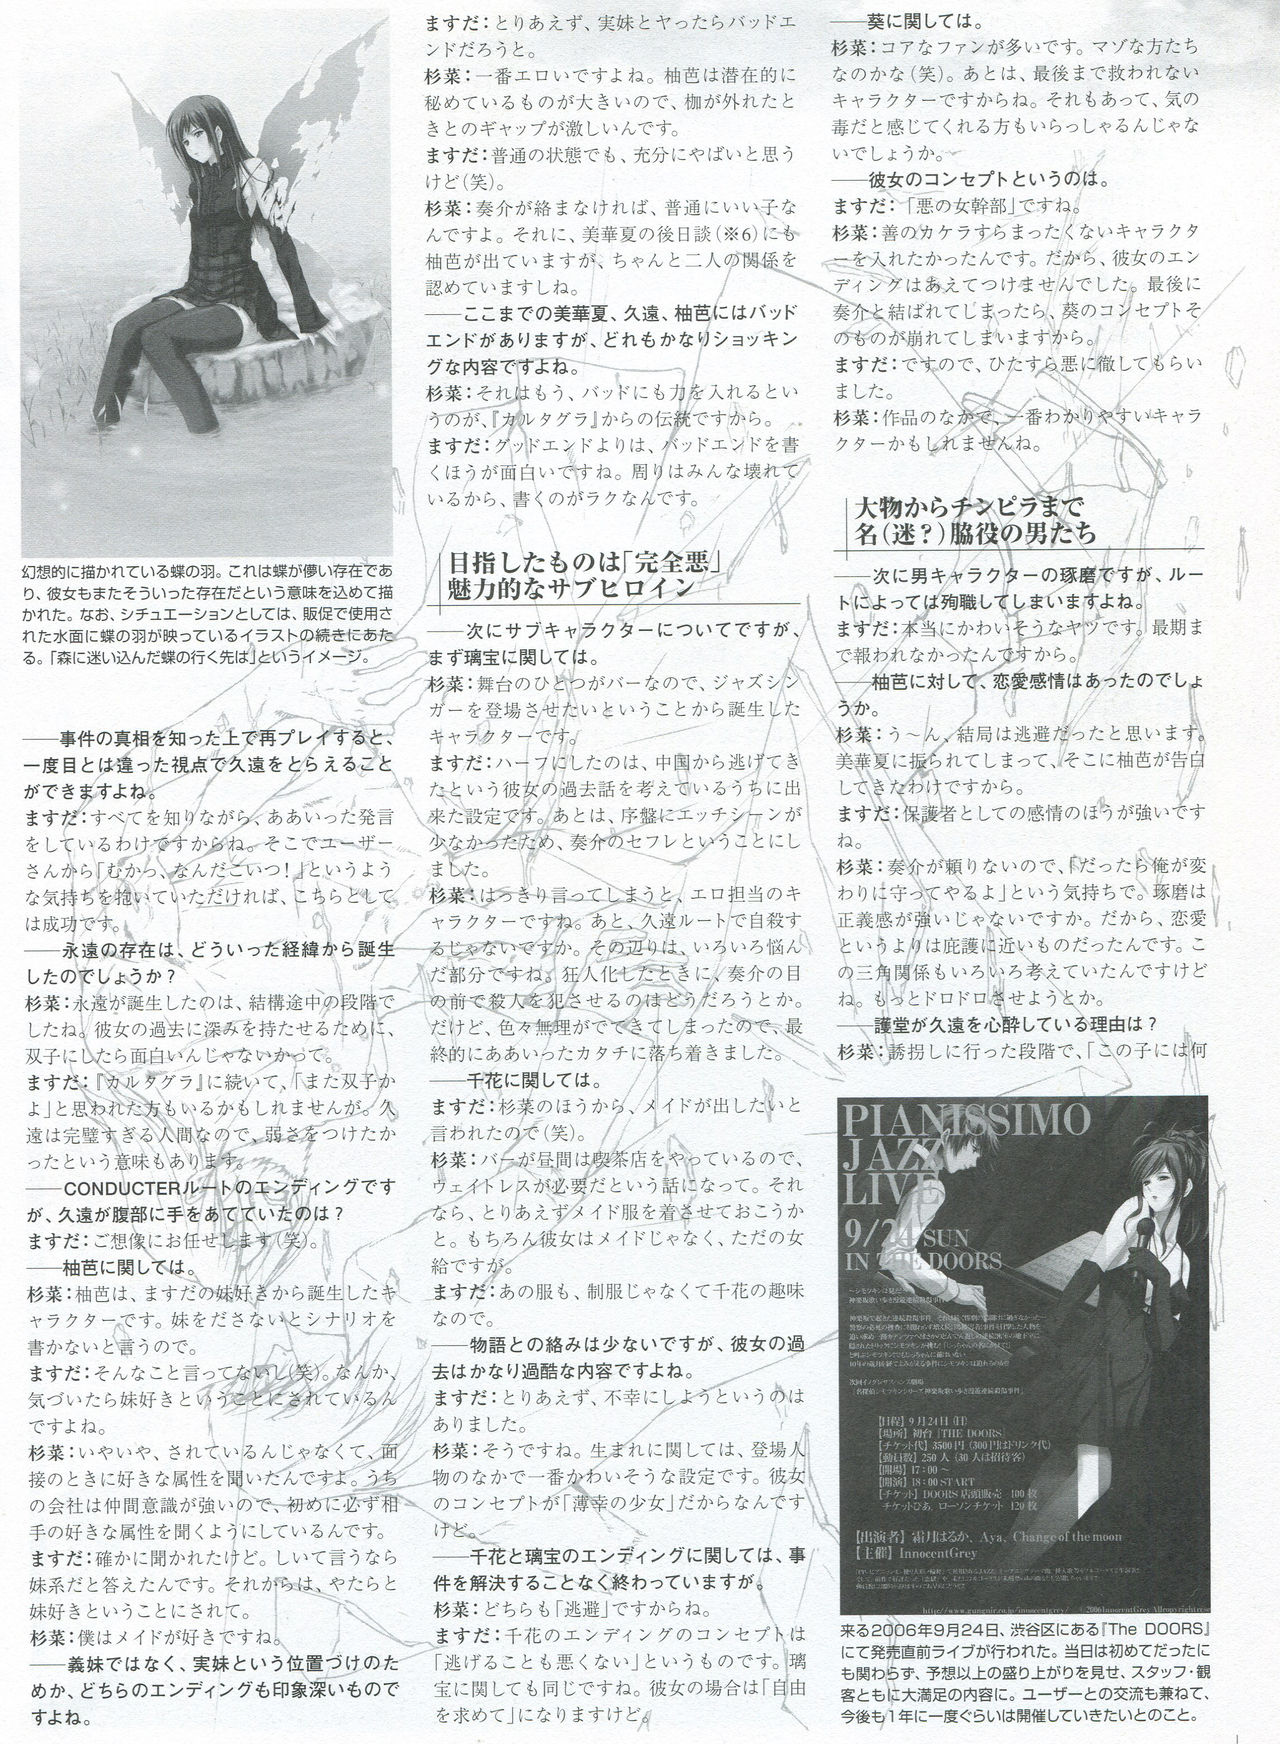 幻想的に描かれている蝶の羽。これは蝶が儚い存在であ
り、彼女もまたそういった存在だという意味を込めて描
かれた。なお、シチュエーションとしては、販促で使用さ
れた水面に蝶の羽が映っているイラストの続きにあた
る。「森に迷い込んだ蝶の行く先は」というイメージ。
――事件の真相を知った上で再プレイすると、
一度目とは違った視点で久遠をとらえること
ができますよね。
ますだ：すべてを知りながら、ああいった発言
をしているわけですからね。そこでユーザー
さんから「むかっ、なんだこいつ！」というよう
な気持ちを抱いていただければ、こちらとして
は成功です。
――永遠の存在は、どういった経緯から誕生
したのでしょうか？
杉菜：永遠が誕生したのは、結構途中の段階で
したね。彼女の過去に深みを持たせるために、
双子にしたら面白いんじゃないかって。
ますだ：『カルタグラ』に続いて、「また双子か
よ」と思われた方もいるかもしれませんが。久
遠は完璧すぎる人間なので、弱さをつけたか
ったという意味もあります。
――CONDUCTERルートのエンディングです
が、久遠が腹部に手をあてていたのは？
ますだ：ご想像にお任せします（笑）。
――柚芭に関しては。
杉菜：柚芭は、ますだの妹好きから誕生したキ
ャラクターです。妹をださないとシナリオを
書かないと言うので。
ますだ：そんなこと言ってないし（笑）。なんか、
気づいたら妹好きということにされているん
ですよね。
杉菜：いやいや、されているんじゃなくて、面
接のときに好きな属性を聞いたんですよ。うち
の会社は仲間意識が強いので、初めに必ず相
手の好きな属性を聞くようにしているんです。
ますだ：確かに聞かれたけど。しいて言うなら
妹系だと答えたんです。それからは、やたらと
妹好きということにされて。
杉菜：僕はメイドが好きですね。
――義妹ではなく、実妹という位置づけのた
めか、どちらのエンディングも印象深いもので
すよね。
ますだ：とりあえず、実妹とヤったらバッドエ
ンドだろうと。
杉菜：一番エロいですよね。柚芭は潜在的に
秘めているものが大きいので、枷が外れたと
きとのギャップが激しいんです。
ますだ：普通の状態でも、充分にやばいと思う
けど（笑）。
杉菜：奏介が絡まなければ、普通にいい子な
んですよ。それに、美華夏の後日談（※6）にも
柚芭が出ていますが、ちゃんと二人の関係を
認めていますしね。
――ここまでの美華夏、久遠、柚芭にはバッド
エンドがありますが、どれもかなりショッキン
グな内容ですよね。
杉菜：それはもう、バッドにも力を入れるとい
うのが、『カルタグラ』からの伝統ですから。
ますだ：グッドエンドよりは、バッドエンドを書
くほうが面白いですね。周りはみんな壊れて
いるから、書くのがラクなんです。
目指したものは「完全悪」
魅力的なサブヒロイン
――次にサブキャラクターについてですが、
まず璃宝に関しては。
杉菜：舞台のひとつがバーなので、ジャズシン
ガーを登場させたいということから誕生した
キャラクターです。
ますだ：ハーフにしたのは、中国から逃げてき
たという彼女の過去話を考えているうちに出
来た設定です。あとは、序盤にエッチシーンが
少なかったため、奏介のセフレということにし
ました。
杉菜：はっきり言ってしまうと、エロ担当のキ
ャラクターですね。あと、久遠ルートで自殺す
るじゃないですか。その辺りは、いろいろ悩ん
だ部分ですね。狂人化したときに、奏介の目
の前で殺人を犯させるのはどうだろうとか。
だけど、色々無理がでてきてしまったので、最
終的にああいったカタチに落ち着きました。
――千花に関しては。
ますだ：杉菜のほうから、メイドが出したいと
言われたので（笑）。
杉菜：バーが昼間は喫茶店をやっているので、
ウェイトレスが必要だという話になって。それ
なら、とりあえずメイド服を着させておこうか
と。もちろん彼女はメイドじゃなく、ただの女
給ですが。
ますだ：あの服も、制服じゃなくて千花の趣味
なので。
――物語との絡みは少ないですが、彼女の過
去はかなり過酷な内容ですよね。
ますだ：とりあえず、不幸にしようというのは
ありました。
杉菜：そうですね。生まれに関しては、登場人
物のなかで一番かわいそうな設定です。彼女
のコンセプトが「薄幸の少女」だからなんです
けど。
――千花と璃宝のエンディングに関しては、事
件を解決することなく終わっていますが。
杉菜：どちらも「逃避」ですからね。
ますだ：千花のエンディングのコンセプトは
「逃げることも悪くない」というものです。璃
宝に関しても同じですね。彼女の場合は「自由
を求めて」になりますけど。
――葵に関しては。
杉菜：コアなファンが多いです。マゾな方たち
なのかな（笑）。あとは、最後まで救われない
キャラクターですからね。それもあって、気の
毒だと感じてくれる方もいらっしゃるんじゃな
いでしょうか。
――彼女のコンセプトというのは。
ますだ：「悪の女幹部」ですね。
杉菜：善のカケラすらまったくないキャラクタ
ーを入れたかったんです。だから、彼女のエン
ディングはあえてつけませんでした。最後に
奏介と結ばれてしまったら、葵のコンセプトそ
のものが崩れてしまいますから。
ますだ：ですので、ひたすら悪に徹してもらい
ました。
杉菜：作品のなかで、一番わかりやすいキャラ
クターかもしれませんね。
大物からチンピラまで
名（迷？）脇役の男たち
――次に男キャラクターの琢磨ですが、ルー
トによっては殉職してしまいますよね。
ますだ：本当にかわいそうなヤツです。最期ま
で報われなかったんですから。
――柚芭に対して、恋愛感情はあったのでしょ
うか。
杉菜：う～ん、結局は逃避だったと思います。
美華夏に振られてしまって、そこに柚芭が告白
してきたわけですから。
ますだ：保護者としての感情のほうが強いです
ね。
杉菜：奏介が頼りないので、「だったら俺が変
わりに守ってやるよ」という気持ちで。琢磨は
正義感が強いじゃないですか。だから、恋愛
というよりは庇護に近いものだったんです。こ
の三角関係もいろいろ考えていたんですけど
ね。もっとドロドロさせようとか。
――護堂が久遠を心酔している理由は？
杉菜：誘拐しに行った段階で、「この子には何
PIANISSIMO
JAZZ
LIVE
9/24 SUN
IN THE DOORS
【日程】9月24日（日）
【場所】初台「THE DOORS」
【チケット代】3500円（300円はドリンク代）
【動員数】250人（30人は招待客）
【開場】17:00～
【開演】18:00 START
【チケット】DOORS店頭販売 100枚
チケットぴあ、ローソンチケット 120枚
【出演者】霜月はるか、Aya、Change of the moon
【主催】InnocentGrey
http://www.gungnir.co.jp/innocentgrey/ ©2006 InnocentGrey Allcopyrightreserved
来る2006年9月24日、渋谷区にある『The DOORS』
にて発売直前ライブが行われた。当日は初めてだったに
も関わらず、予想以上の盛り上がりを見せ、スタッフ・観
客ともに大満足の内容に。ユーザーとの交流も兼ねて、
今後も1年に一度ぐらいは開催していきたいとのこと。